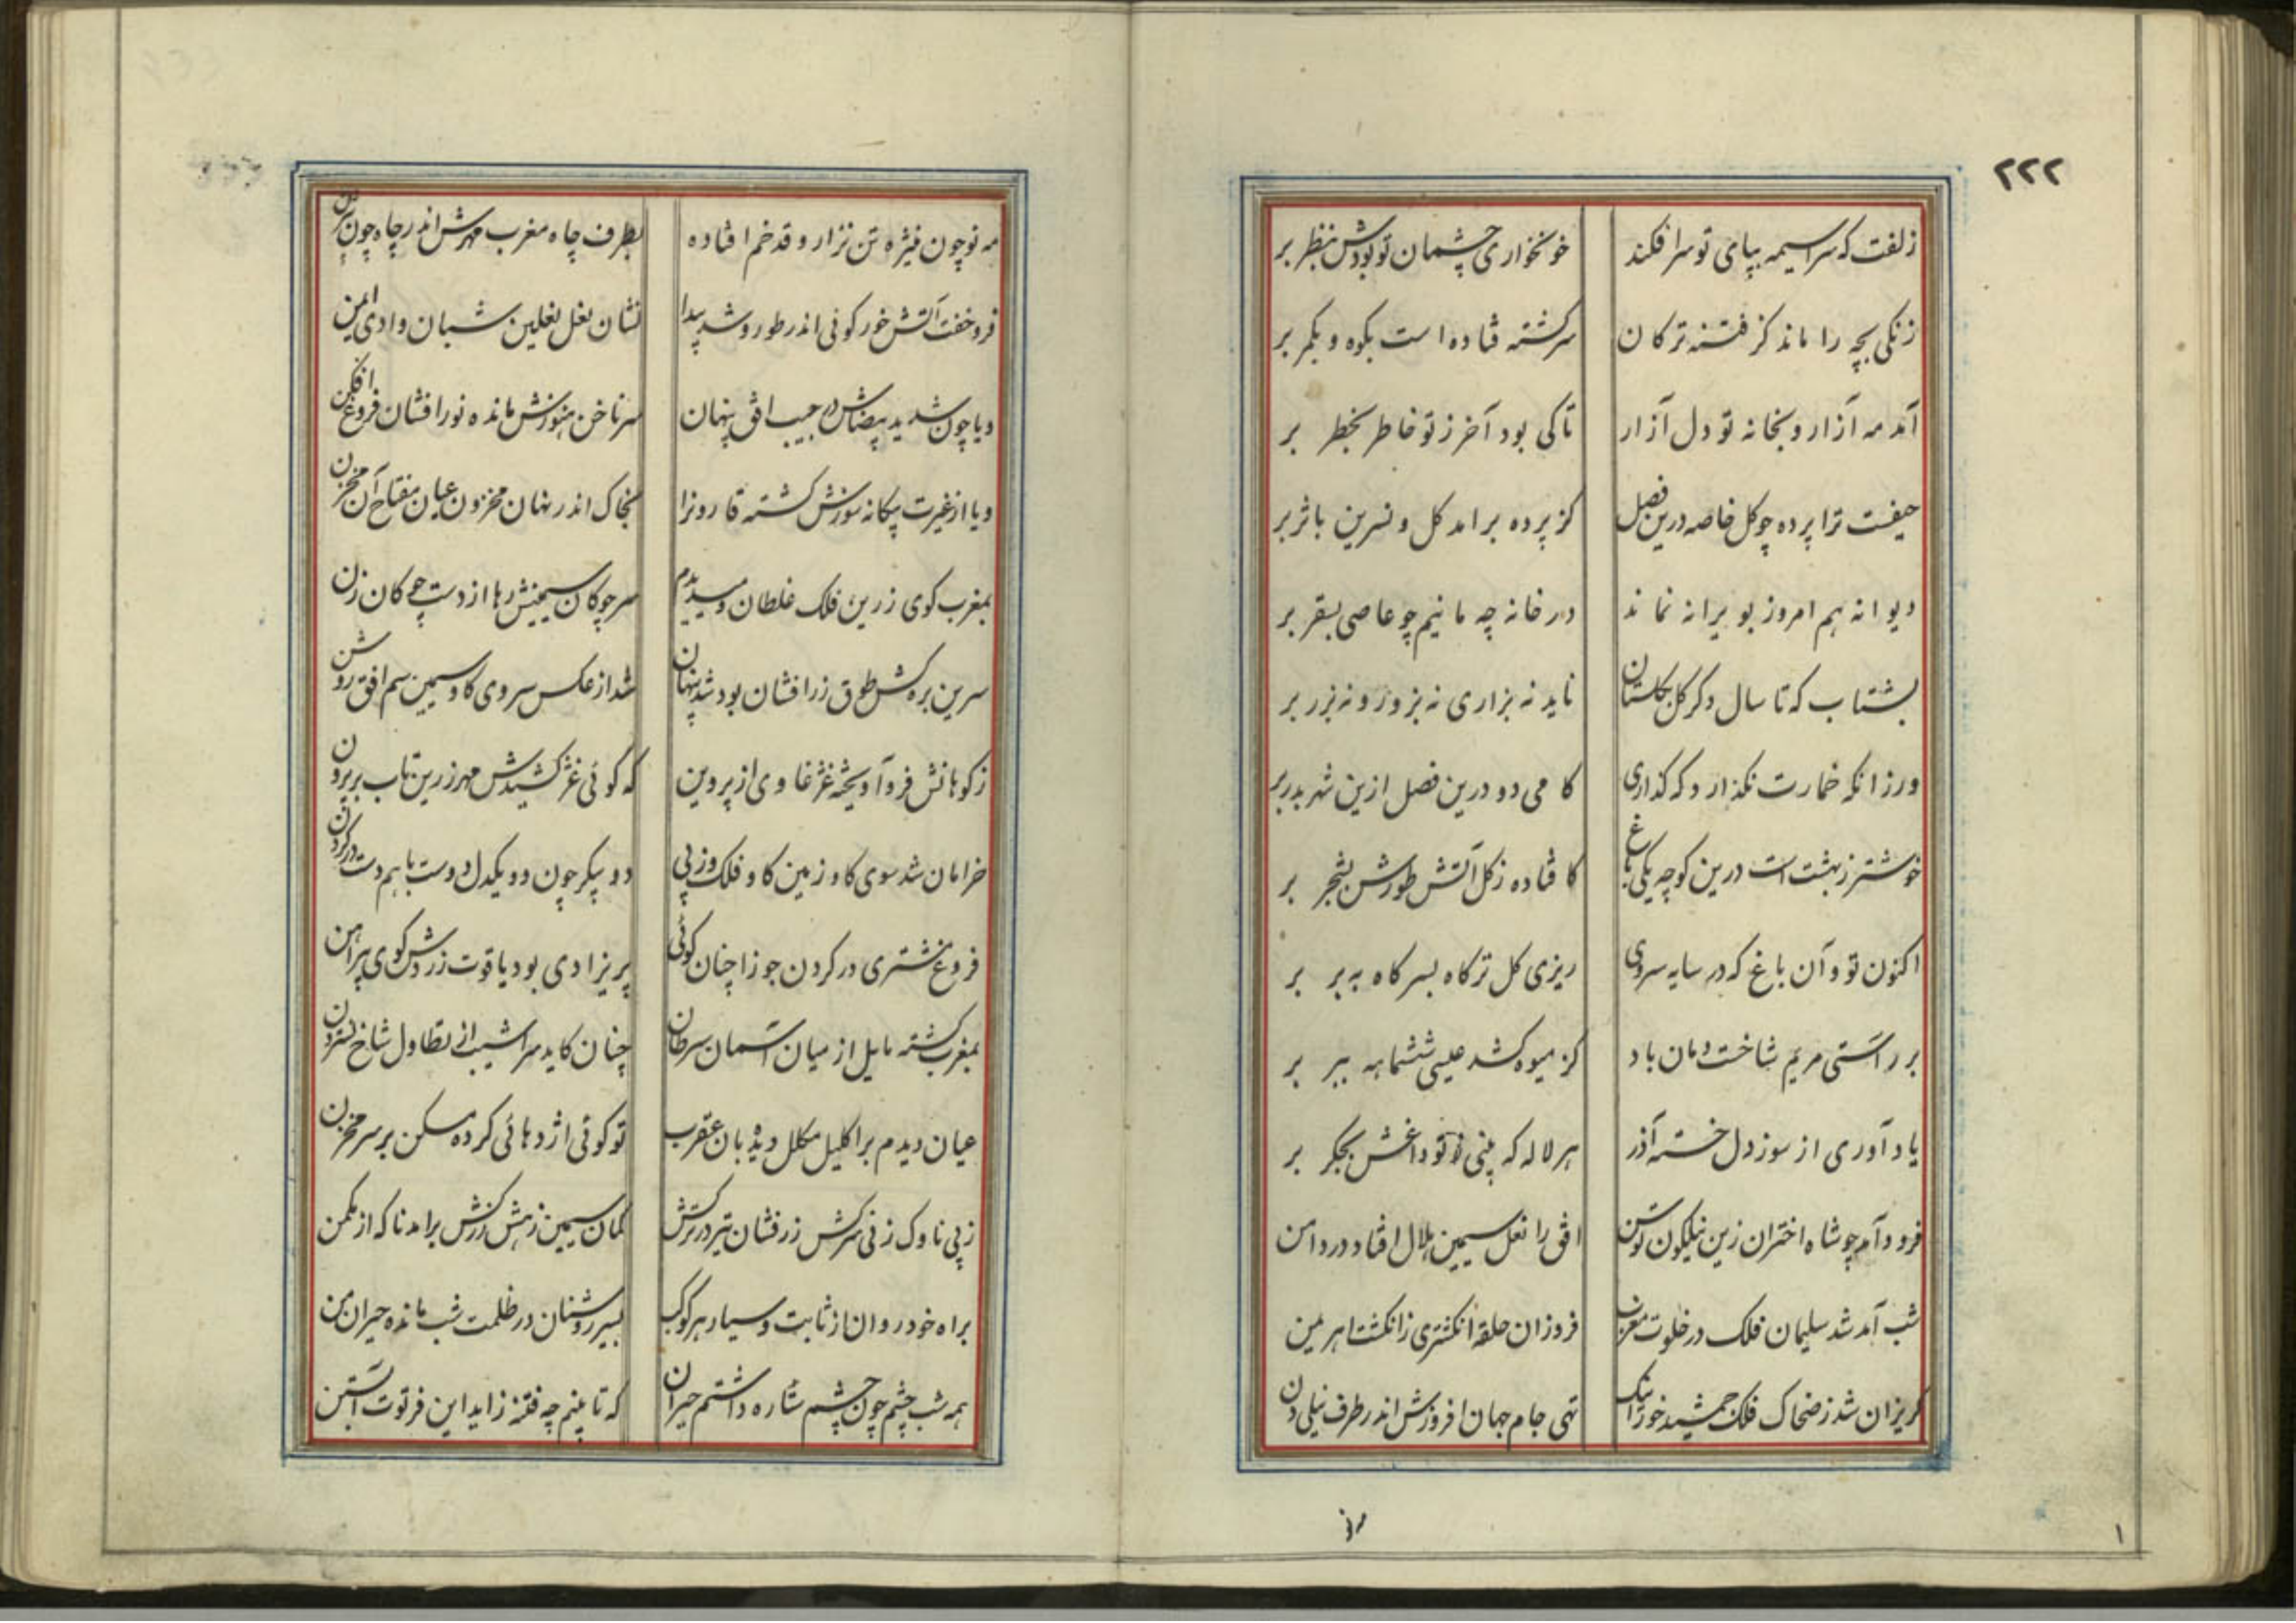 ۲۲۲
زلفت که سراسیمه بپای تو سر افکند خونخواری چشمان تو بودش بنظر بر
زنکی بچه را ماند کز فتنه ترکان سرکشته فتاده است بکوه و بکمر بر
آمد مه آزار و بخانه تو دل آزار تا کی بود آخر ز تو خاطر بخطر بر
حیفست ترا پرده چو کل خاصه درین فصل کز پرده برامد کل و نسرین باثر بر
دیوانه هم امروز بویرانه نماند در خانه چه مانیم چو عاصی بسقر بر
بشتاب که تا سال دکر کل بکلستان ناید نه بزاری نه بزور و نه بزر بر
ورزانکه خمارت نکذارد که کذاری کامی دو درین فصل ازین شهر بدر بر
خوشتر ز بهشت است درین کوچه یکی باغ کافتاده ز کل آتش طورش بشجر بر
اکنون تو و آن باغ که در سایه سروی ریزی کل تر کاه بسر کاه ببر بر
بر راستی مریم شاخست دمان باد کز میوه کشد عیسی ششماهه ببر بر
یاد آوری از سوز دل خسته آذر هر لاله که بینی ز تو داغش بجکر بر
فرود آمد چو شاه اختران زین نیلکون توسن افق را نعل سیمین هلال افتاد در دامن
شب آمد شد سلیمان فلک در خلوت مغرب فروزان حلقه انکشتری ز انکشت اهریمن
کریزان شد ز ضحاک فلک جمشید خور اینک تهی جام جهان افروزش اندر طرف نیلی دن
مه نو چون نیژه تن نزار و قد خم افتاده بطرف چاه مغرب مهرش اندر چاه چون بیژن
فرو خفت آتش خور کوئی اندر طور و شد پیدا نشان نعل نعلین شبان وادی ایمن
و یا چون شد ید بیضاش در جیب افق پنهان سر ناخن هنوزش مانده نور افشان فروغ افکن
و یا از غیرت بیکانه سوزش کشته قارونرا بخاک اندر نهان مخزون عیان مفتاح آن مخزن
بمغرب کوی زرین فلک غلطان و میدیدم سر چوکان سیمینش رها از دست چوکان زن
سرین بره کش طوق زر افشان بود شد پنهان شد از عکس سروی کاو سیمین سم افق روشن
ز کوهانش فرو آویخته غژغاوی از پروین که کوئی غژ کشیدش مهر زرین تاب
خرامان شد سوی کاو زمین کاو فلک وز پی دو پیکر چون دو یکدل دوست با هم دست در کردن
فروغ مشتری در کردن جوزا چنان کوئی پریزادی بود یاقوت زردش کوی پیراهن
بمغرب کشته مایل از میان آسمان سرطان چنان کاید سراشیب از تطاول شاخ نسترون
عیان دیدم بر اکلیل مکلل دیده بان عقرب تو کوئی اژدهائی کرده مسکن بر سر مخزن
ز پی ناوک زنی سرکش زرفشان تیر در ترکش کمان سیمین زهش زرکش برامد ناکه از مکمن
براه خود روان از ثابت و سیار هر کوکب بسیر روشنان در ظلمت شب مانده حیران من
همه شب چشم چون چشم ستاره داشتم حیران که تا بینم چه فتنه زاید این فرتوت آبستن
مه نو
۱